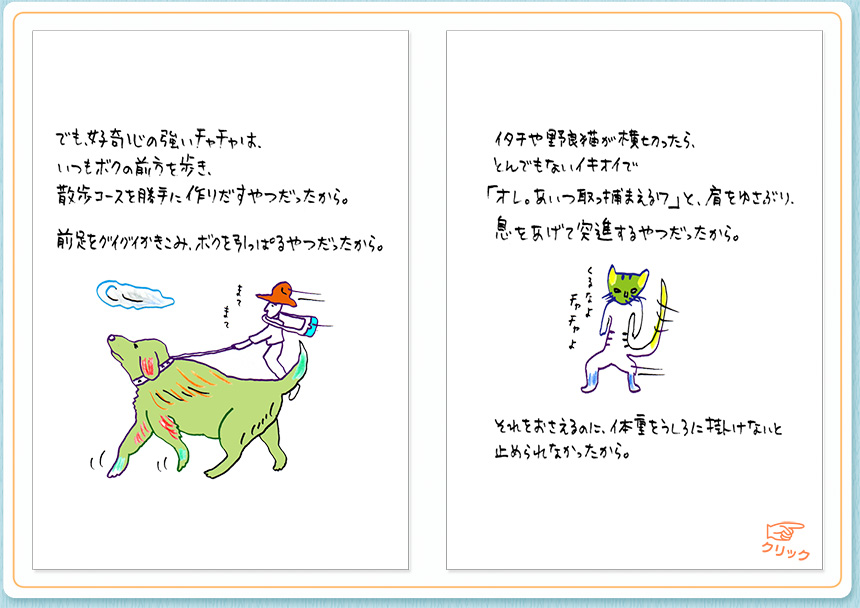 でも、好奇心の強いチャチャは、
いつもボクの前方を歩き、
散歩コースを勝手に作りだすやつだったから。
前足をグイグイかきこみ、ボクを引っぱるやつだったから。
まて
まて
イタチや野良猫が横切ったら、
とんでもないイキオイで
「オレ。あいつ取っ捕まえるワ」と、肩をゆさぶり、
息をあげて突進するやつだったから。
くるなよ
チャチャよ
それをおさえるのに、体重をうしろに掛けないと
止められなかったから。
クリック